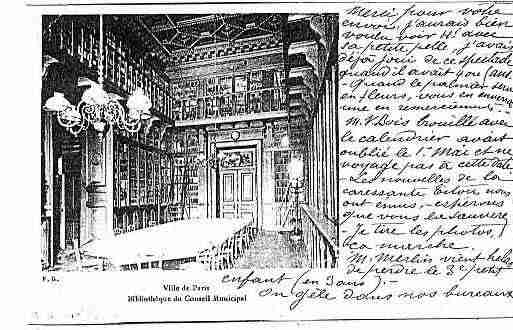 Merci pour votre
envoi, j'aurais bien
voulu voir H. avec
sa petite pelle, j'avais
déjà joui de ce spectacle
quand il avait 4 ou 5 ans.
- Quand le palmier sera
en fleurs, vous en enverrai
une en remerciement.
M. V. Bois trouille avec
le calendrier avait
oublié le 1er Mai et ne
voyage pas à cette date
- Les nouvelles de la
caressante nous
ont émus, - espérons
que vous la sauverez
- Je tire les photos,
ça marche.
M. Merlin vient hélas
de perdre le 3e petit
enfant (en 3 ans). -
On gèle dans nos bureaux
F. G.
Ville de Paris
Bibliothèque du Conseil Municipal